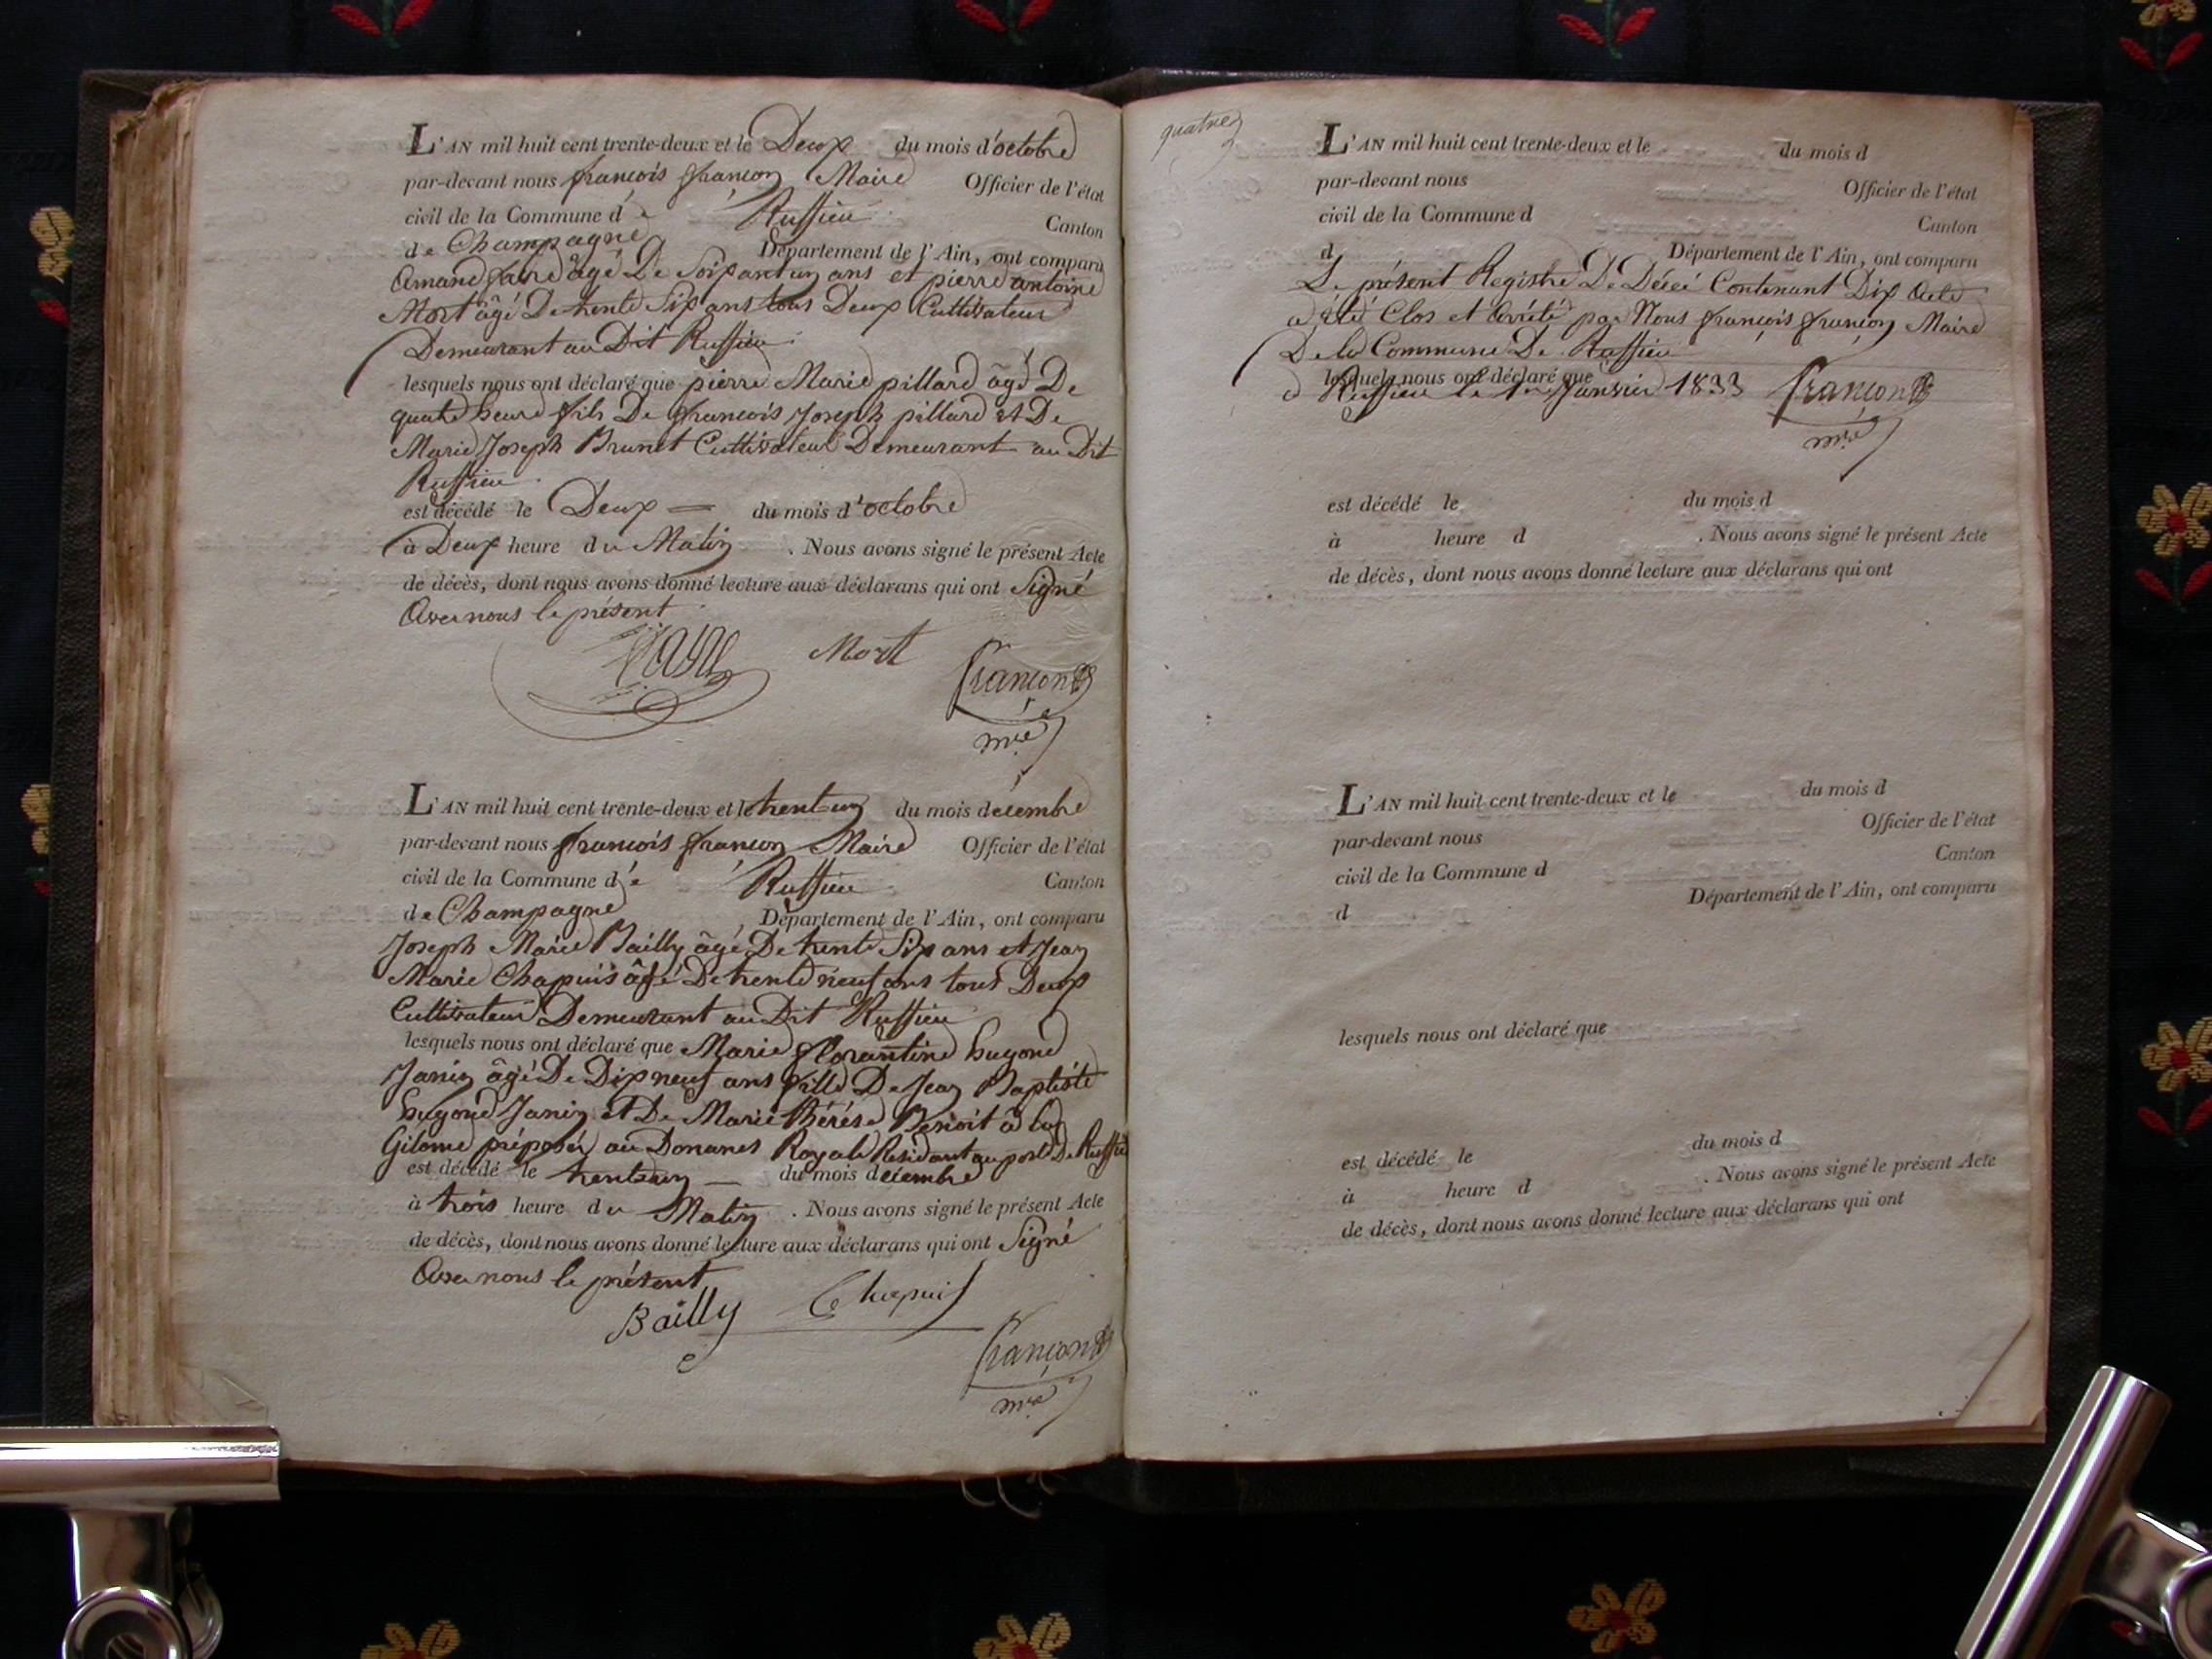 L'AN mil huit cent trente-deux et le Deux du mois d'octobre
par-devant nous françois françon Maire Officier de l'état
civil de la Commune de Ruffieu Canton
de Champagne Département de l'Ain, ont comparu
Amand âgé De Soixantun ans et pierre antoine
Mort âgé De trente Six ans tous Deux Cultivateur
Demeurant au Dit Ruffieu
lesquels nous ont déclaré que pierre Marie pillard âgé De
quatre heure fils De françois Joseph pillard et De
Marie Joseph Brunet Cultivateur Demeurant au Dit
Ruffieu
est décédé le Deux du mois d'octobre
à Deux heure du Matin . Nous avons signé le présent Acte
de décès, dont nous avons donné lecture aux déclarans qui ont Signé
Avec nous le présent
Mort françon
mre
L'AN mil huit cent trente-deux et le trentun du mois decembre
par-devant nous françois françon Maire Officier de l'état
civil de la Commune de Ruffieu Canton
de Champagne Département de l'Ain, ont comparu
Joseph Marie Bailly âgé De trente Six ans et Jean
Marie Chapuis âgé De trente neuf ans tous Deux
Cultivateur Demeurant au Dit Ruffieu
lesquels nous ont déclaré que Marie florantine hugond
Janin âgé De Dix neuf ans fille De Jean Baptiste
hugond Janin et De Marie thérése Benoit à la
Gilome préposé au Douanes Royale Residant au poste De Ruffieu
est décédé le trentun du mois decembre
à trois heure du Matin . Nous avons signé le présent Acte
de décès, dont nous avons donné lecture aux déclarans qui ont Signé
Avec nous le présent
Bailly Chapuis
françon
mre
quatre
L'AN mil huit cent trente-deux et le du mois d
par-devant nous Officier de l'état
civil de la Commune d Canton
d Département de l'Ain, ont comparu
Le présent Registre De Décé Contenant Dix Acte
a été Clos et Arrété par Nous françois françon Maire
De la Commune De Ruffieu
lesquels nous ont déclaré que
a Ruffieu le 1er Janvier 1833 françon
mre
est décédé le du mois d
à heure d . Nous avons signé le présent Acte
de décès, dont nous avons donné lecture aux déclarans qui ont
L'AN mil huit cent trente-deux et le du mois d
par-devant nous Officier de l'état
civil de la Commune d Canton
d Département de l'Ain, ont comparu
lesquels nous ont déclaré que
est décédé le du mois d
à heure d . Nous avons signé le présent Acte
de décès, dont nous avons donné lecture aux déclarans qui ont